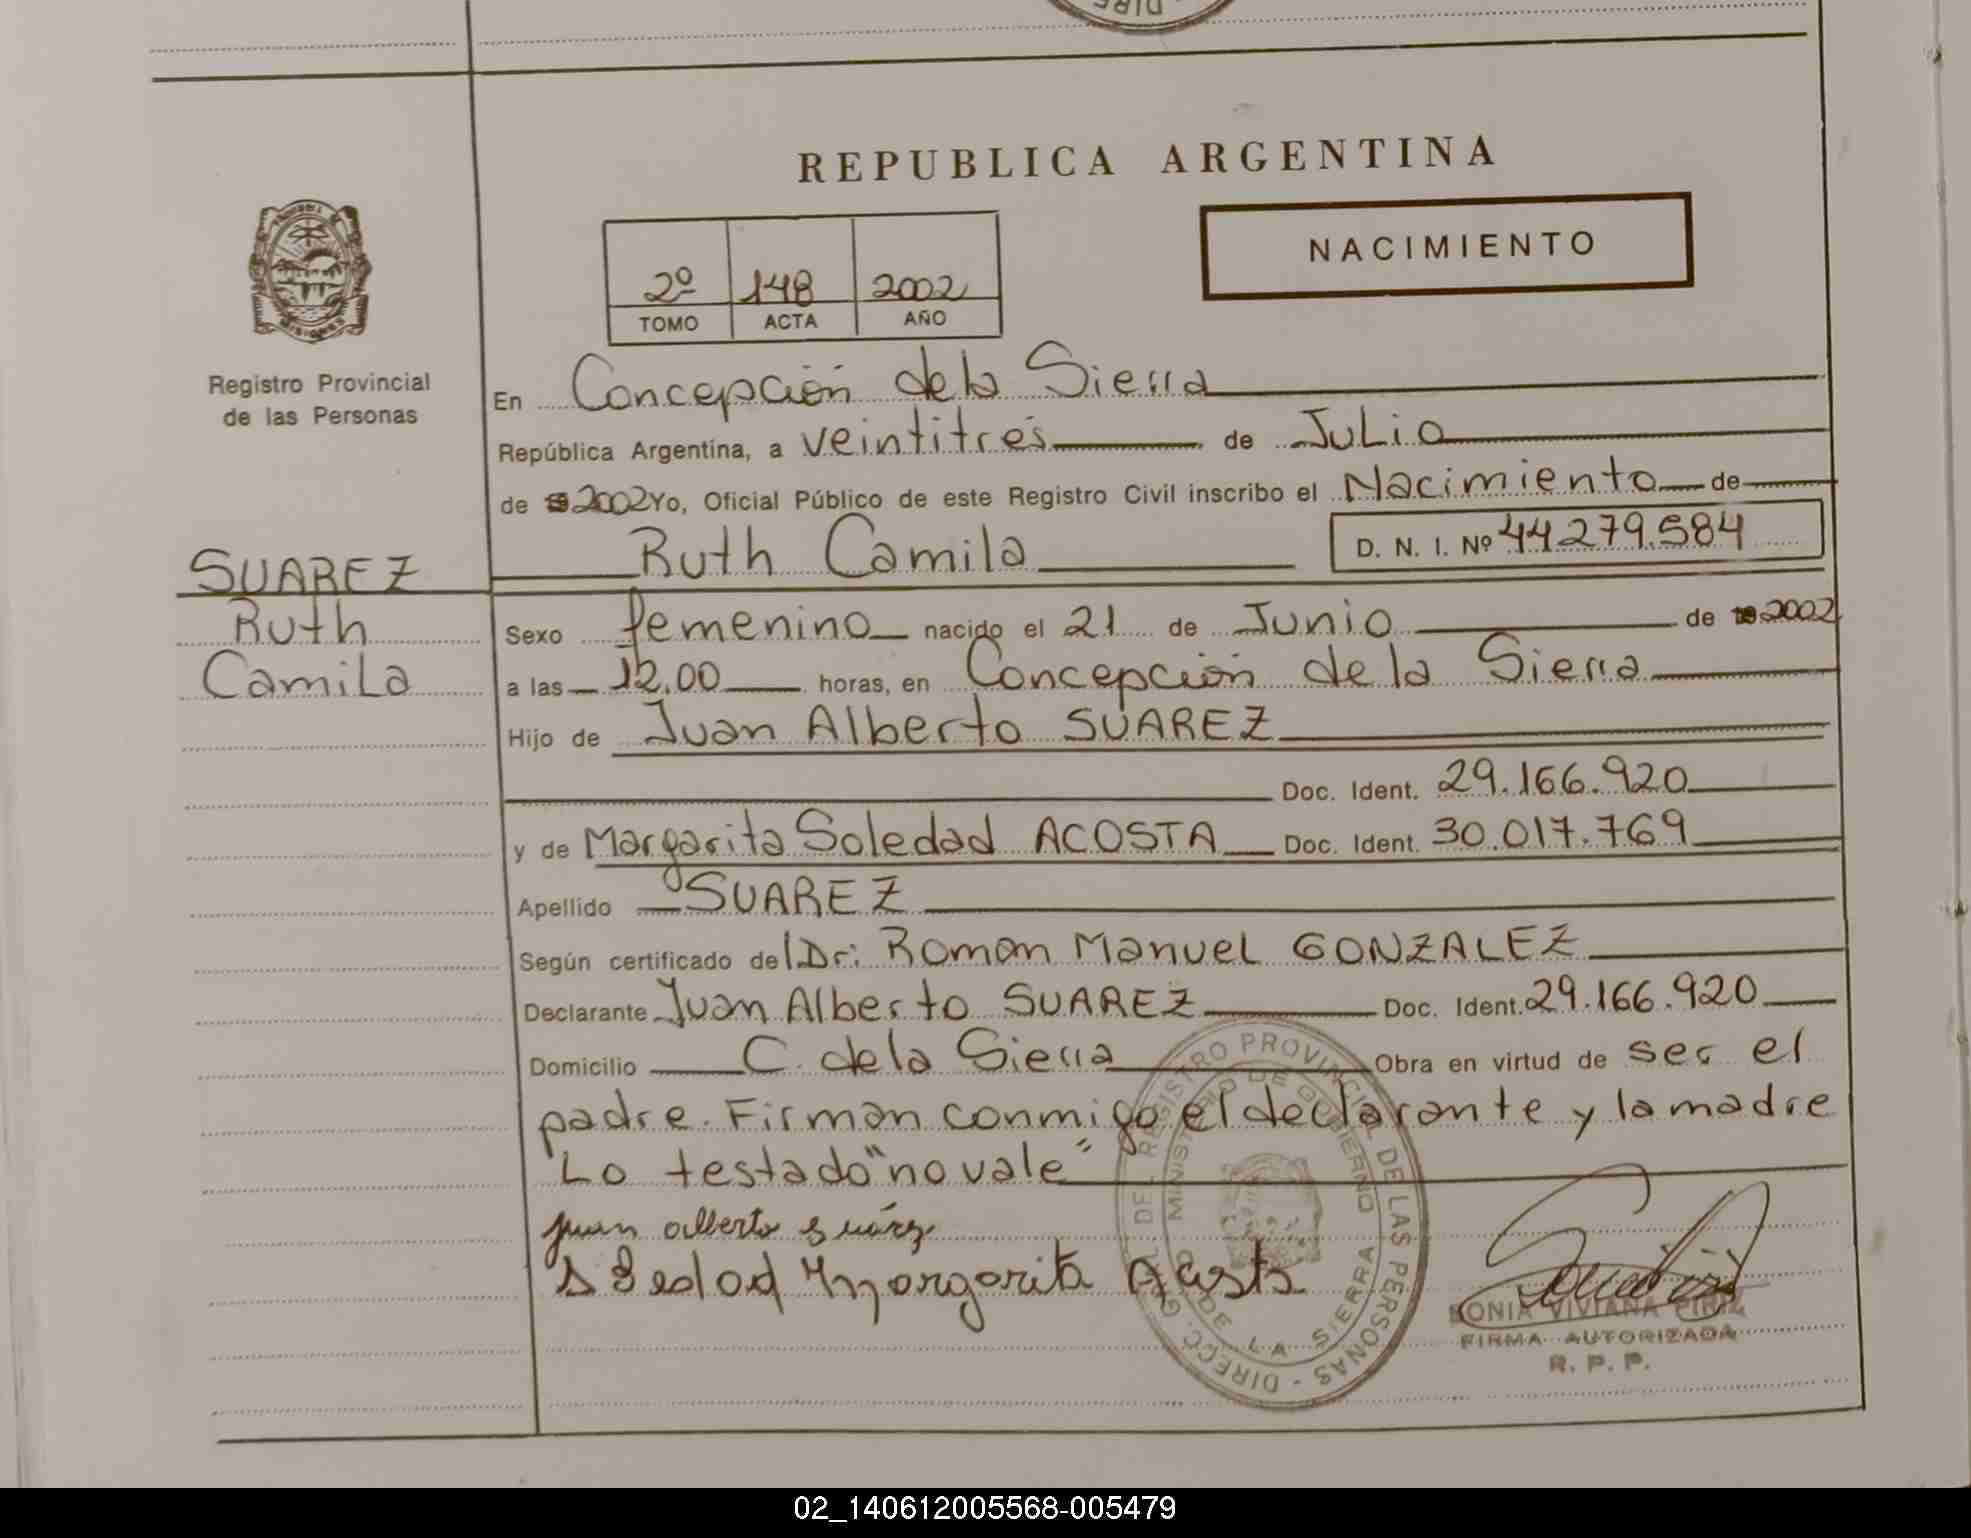 REPUBLICA ARGENTINA
NACIMIENTO
2º 148 2002
TOMO ACTA AÑO
Registro Provincial
de las Personas
En Concepción de la Sierra
República Argentina, a veintitres de Julio
de 2002 Yo, Oficial Público de este Registro Civil inscribo el Nacimiento de
Ruth Camila D. N. I. Nº 44279.584
SUAREZ
Ruth
Camila
Sexo femenino nacido el 21 de Junio de 2002
a las 12.00 horas, en Concepción de la Sierra
Hijo de Juan Alberto SUAREZ
Doc. Ident. 29.166.920
y de Margarita Soledad ACOSTA Doc. Ident. 30.017.769
Apellido SUAREZ
Según certificado del Dr: Roman Manuel GONZALEZ
Declarante Juan Alberto SUAREZ Doc. Ident. 29.166.920
Domicilio C. de la Sierra Obra en virtud de ser el
padre. Firman conmigo el declarante y la madre
"Lo testado "no vale"
juan alberto suárez
Soledad Margarita Acosta
DIRECC. GRAL. DEL REGISTRO PROVINCIAL DE LAS PERSONAS
MINISTERIO DE GOBIERNO
DE LA SIERRA
SONIA VIVIANA PIRIZ
FIRMA AUTORIZADA
R. P. P.
02_140612005568-005479